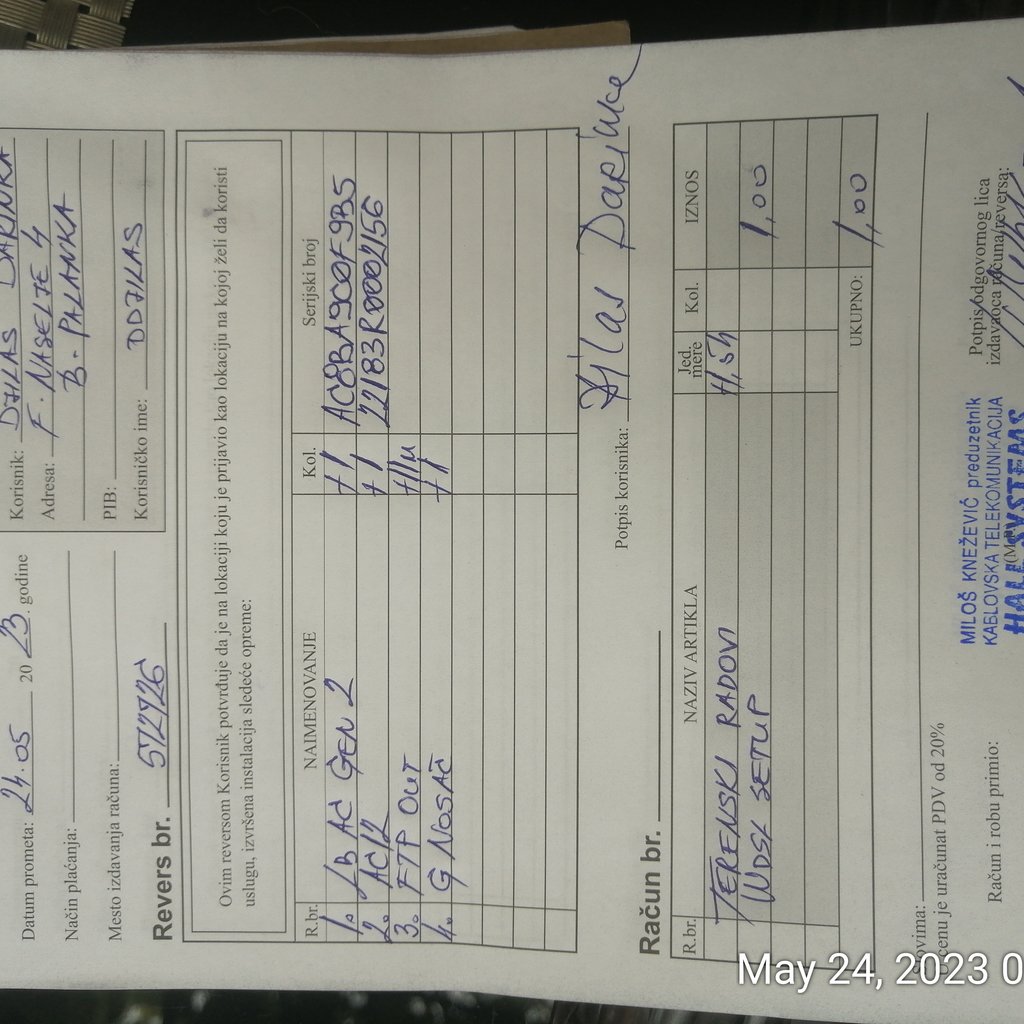 Datum prometa: 24.05 2023. godine
Način plaćanja:
Mesto izdavanja računa:
Korisnik: DJILAS DARINKA
Adresa: F. NASELJE 4
B. PALANKA
PIB:
Korisničko ime: DDJILAS
Revers br. 572726
Ovim reversom Korisnik potvrđuje da je na lokaciji koju je prijavio kao lokaciju na kojoj želi da koristi
uslugu, izvršena instalacija sledeće opreme:
R.br. NAIMENOVANJE Kol. Serijski broj
1. LB AC GEN 2 1 AC8BA9C00F9B5
2. AC12 1 22183R0002156
3. FTP OUT
4. G NOSAČ 1
Potpis korisnika: Djilas Darinka
Račun br.
R.br. NAZIV ARTIKLA Jed. mere Kol. IZNOS
TERENSKI RADOVI
WDSL SETUP 1,00
UKUPNO: 1,00
U cenu je uračunat PDV od 20%
Račun i robu primio:
MILOŠ KNEŽEVIĆ preduzetnik
KABLOVSKA TELEKOMUNIKACIJA
SYSTEMS
Potpis odgovornog lica
izdavaoca računa/reversa:
May 24, 2023